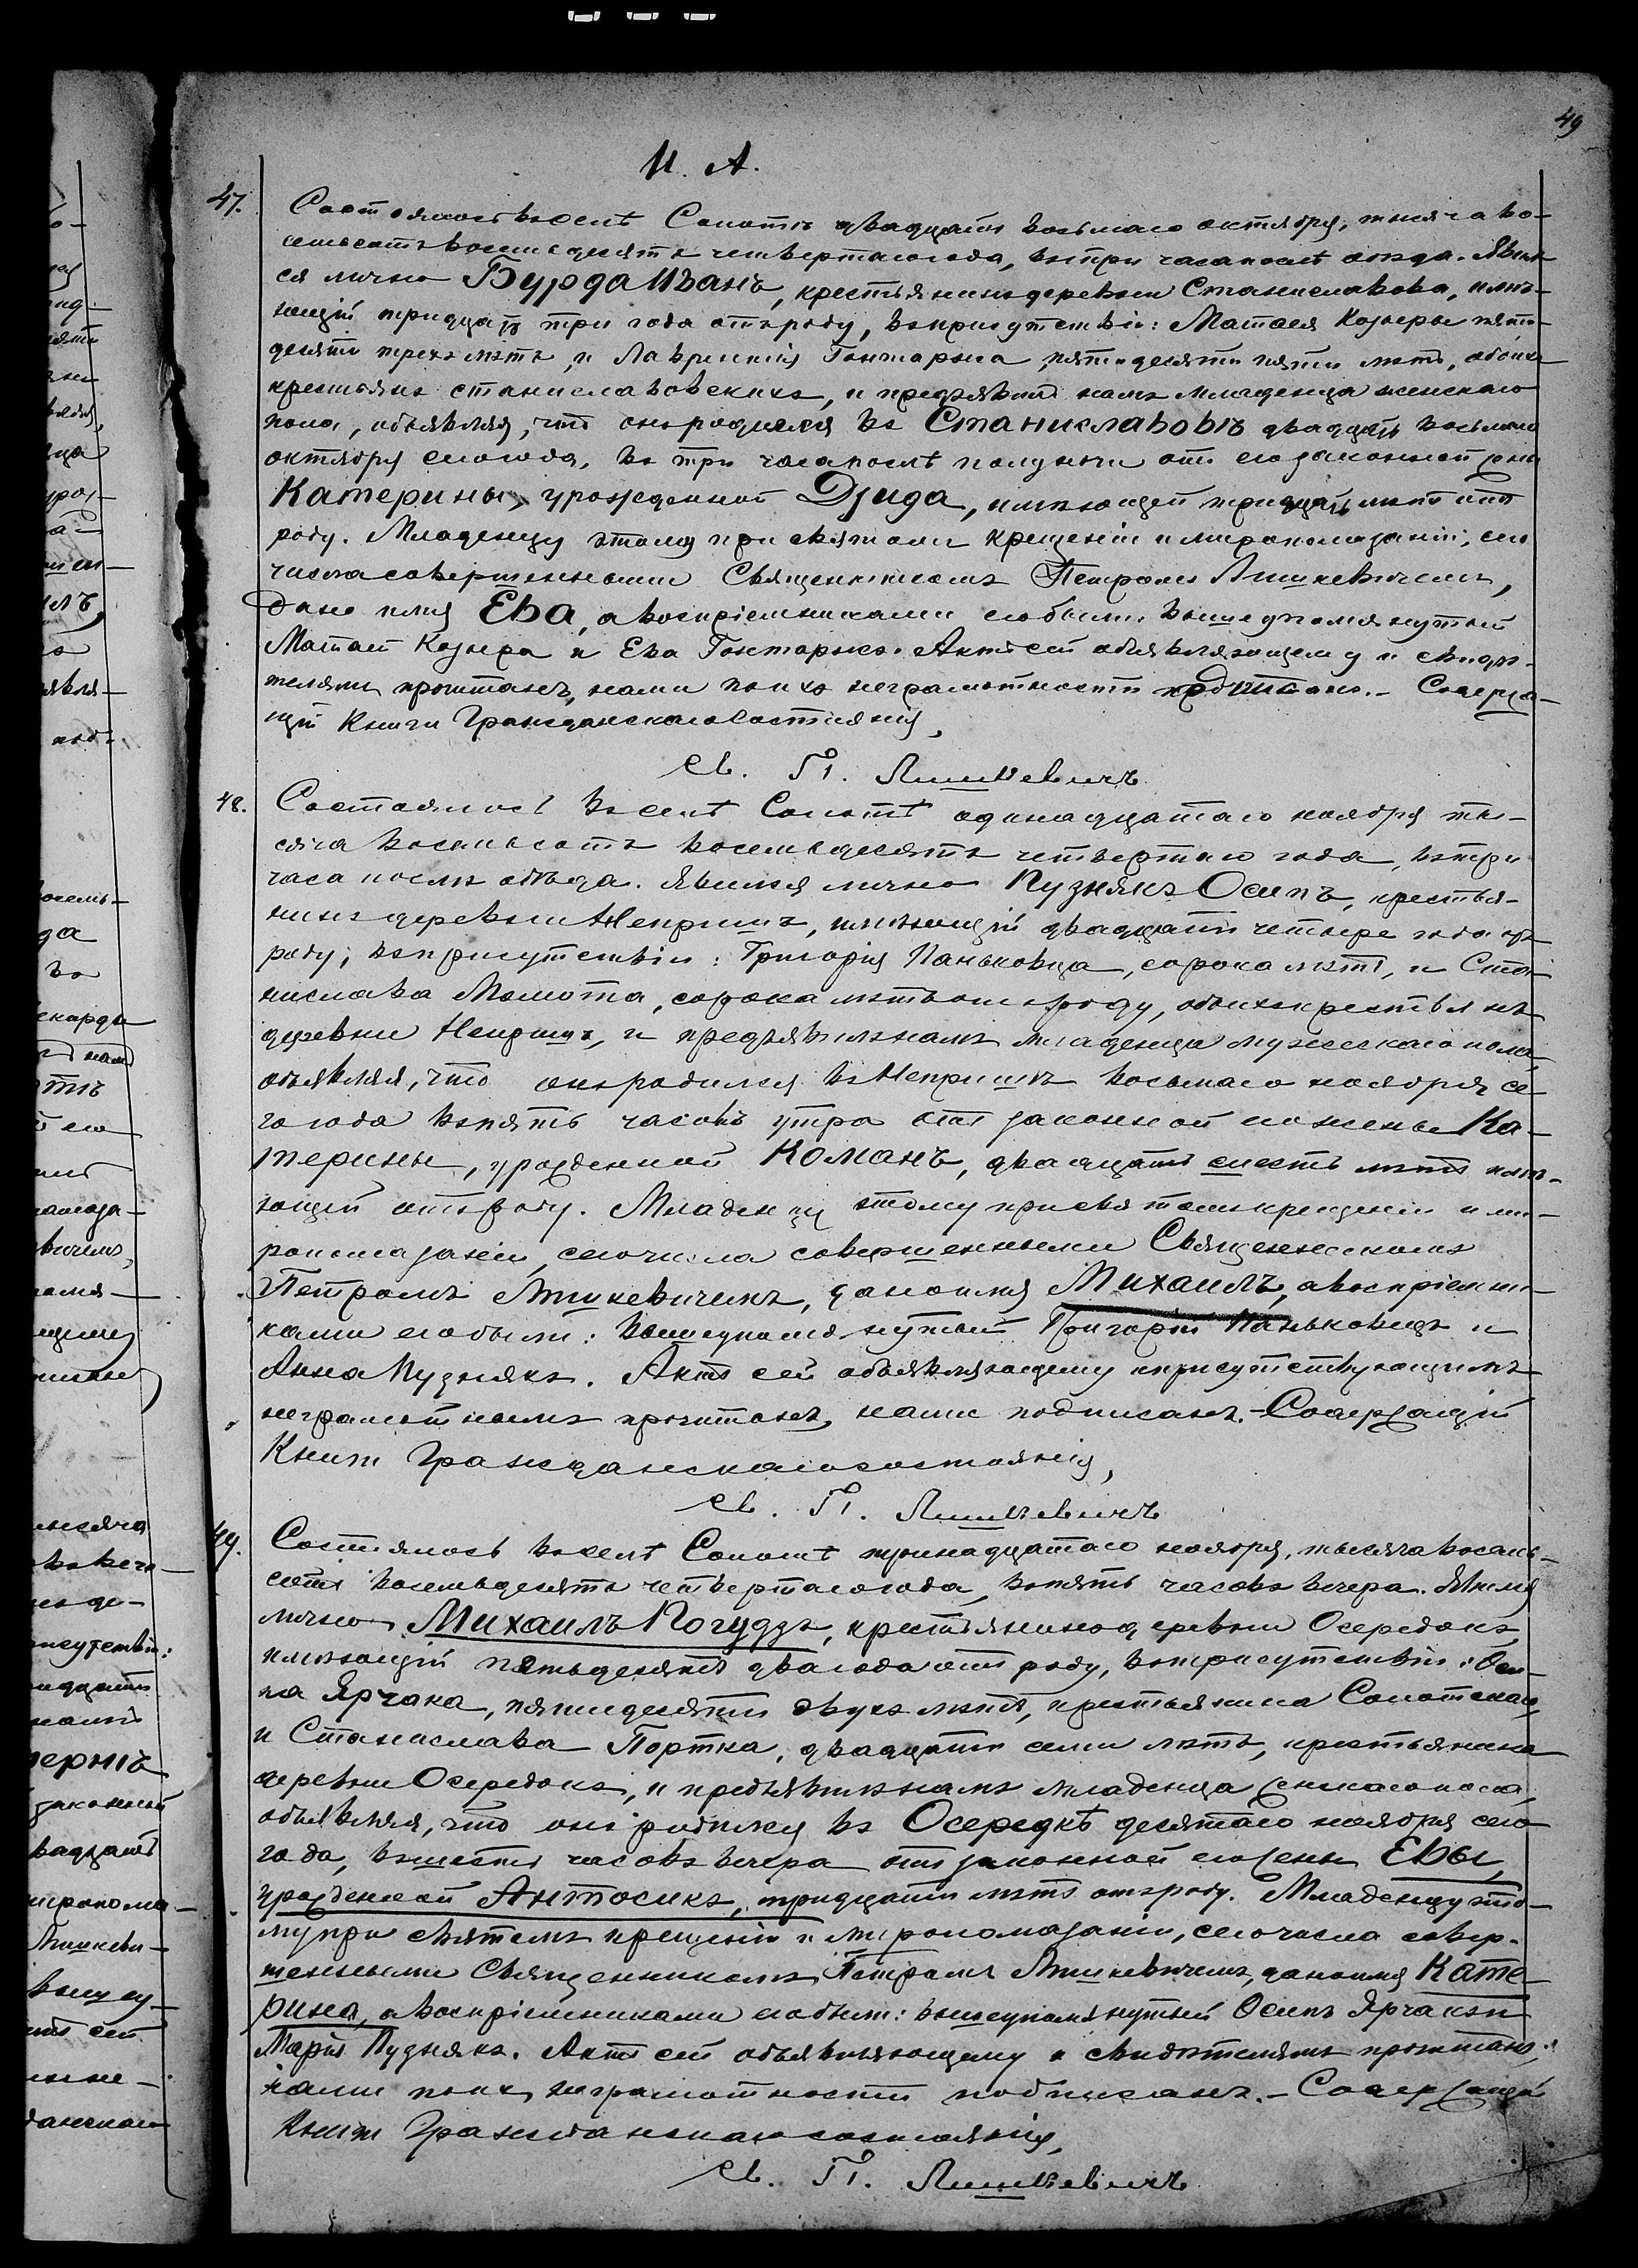 49
И. А.
47.
Состоялось въ селѣ Сопотъ двадцать восьмаго октября, тысяча во-
семьсотъ восемьдесятъ четвертаго года, въ три часа послѣ обѣда. Явил-
ся лично Бурда Иванъ, крестьянинъ деревни Станиславова, имѣ-
ющій тридцать три года отъ роду, въ присутствіи: Матѳея Козыры пяти-
десяти трехъ лѣтъ, и Лаврентія Гонтаржа, пятидесяти пяти лѣтъ, обоихъ
крестьянъ станиславовскихъ, и предъявилъ намъ младенца женскаго
пола, объявляя, что онъ родился въ Станиславовѣ двадцать восьмаго
октября сего года, въ три часа послѣ полуночи отъ его законной жены
Катерины, урожденной Дзида, имѣющей тридцать лѣтъ отъ
роду. Младенцу этому при святомъ крещеніи и миропомазаніи, сего
числа совершенными Священникомъ Петромъ Ляшкевичемъ,
дано имя Ева, а воспріемниками его были: вышеупомянутый
Матѳей Козыра и Ева Гонтаржъ. Актъ сей объявляющему и свидѣ-
телямъ прочитанъ, нами по ихъ неграмотности подписанъ. – Содержа-
щій Книги Гражданскаго Состоянія,
Св. П. Ляшкевичъ
48.
Состоялось въ селѣ Сопотѣ одинадцатаго ноября ты-
сяча восемьсотъ восемьдесятъ четвертаго года, въ три
часа послѣ обѣда. Явился лично Пузнякъ Осипъ, крестья-
нинъ деревни Непришъ, имѣющій двадцать четыре года отъ
роду, въ присутствіи: Григорія Паньковца, сорока лѣтъ, и Ста-
нислава Момота, сорока лѣтъ отъ роду, обоихъ крестьянъ
деревни Непришъ, и предъявилъ намъ младенца мужескаго пола,
объявляя, что онъ родился въ Непришѣ восьмаго ноября се-
го года въ пять часовъ утра отъ законной его жены Ка-
терины, урожденной Команъ, двадцать шесть лѣтъ имѣ-
ющей отъ роду. Младенцу этому при святомъ крещеніи и ми-
ропомазаніи, сего числа совершенными Священникомъ
Петромъ Ляшкевичемъ, дано имя Михаилъ, а воспріемни-
ками его были: вышеупомянутый Григорій Паньковецъ и
Анна Пузнякъ. Актъ сей объявляющему и присутствующимъ
неграмотнымъ прочитанъ, нами подписанъ. – Содержащій
Книги Гражданскаго состоянія,
Св. П. Ляшкевичъ
49.
Состоялось въ селѣ Сопотѣ тринадцатаго ноября, тысяча восемь-
сотъ восемьдесятъ четвертаго года, въ пять часовъ вечера. Явился
лично Михаилъ Погудзъ, крестьянинъ деревни Осередокъ,
имѣющій пятьдесятъ два года отъ роду, въ присутствіи: Оси-
па Ярчака, пятидесяти двухъ лѣтъ, крестьянина Сопотскаго,
и Станислава Портка, двадцати семи лѣтъ, крестьянина
деревни Осередокъ, и предъявилъ намъ младенца женскаго пола,
объявляя, что онъ родился въ Осередкѣ десятаго ноября сего
года, въ шесть часовъ вечера отъ законной его жены Евы,
урожденной Антосикъ, тридцати лѣтъ отъ роду. Младенцу это-
му при святомъ крещеніи и миропомазаніи, сего числа совер-
шенными Священникомъ Петромъ Ляшкевичемъ, дано имя Кате-
рина, а воспріемниками его были: вышеупомянутый Осипъ Ярчакъ и
Марія Пузнякъ. Актъ сей объявляющему и свидѣтелямъ прочитанъ,
нами по ихъ неграмотности подписанъ. – Содержащій
Книги Гражданскаго состоянія,
Св. П. Ляшкевичъ